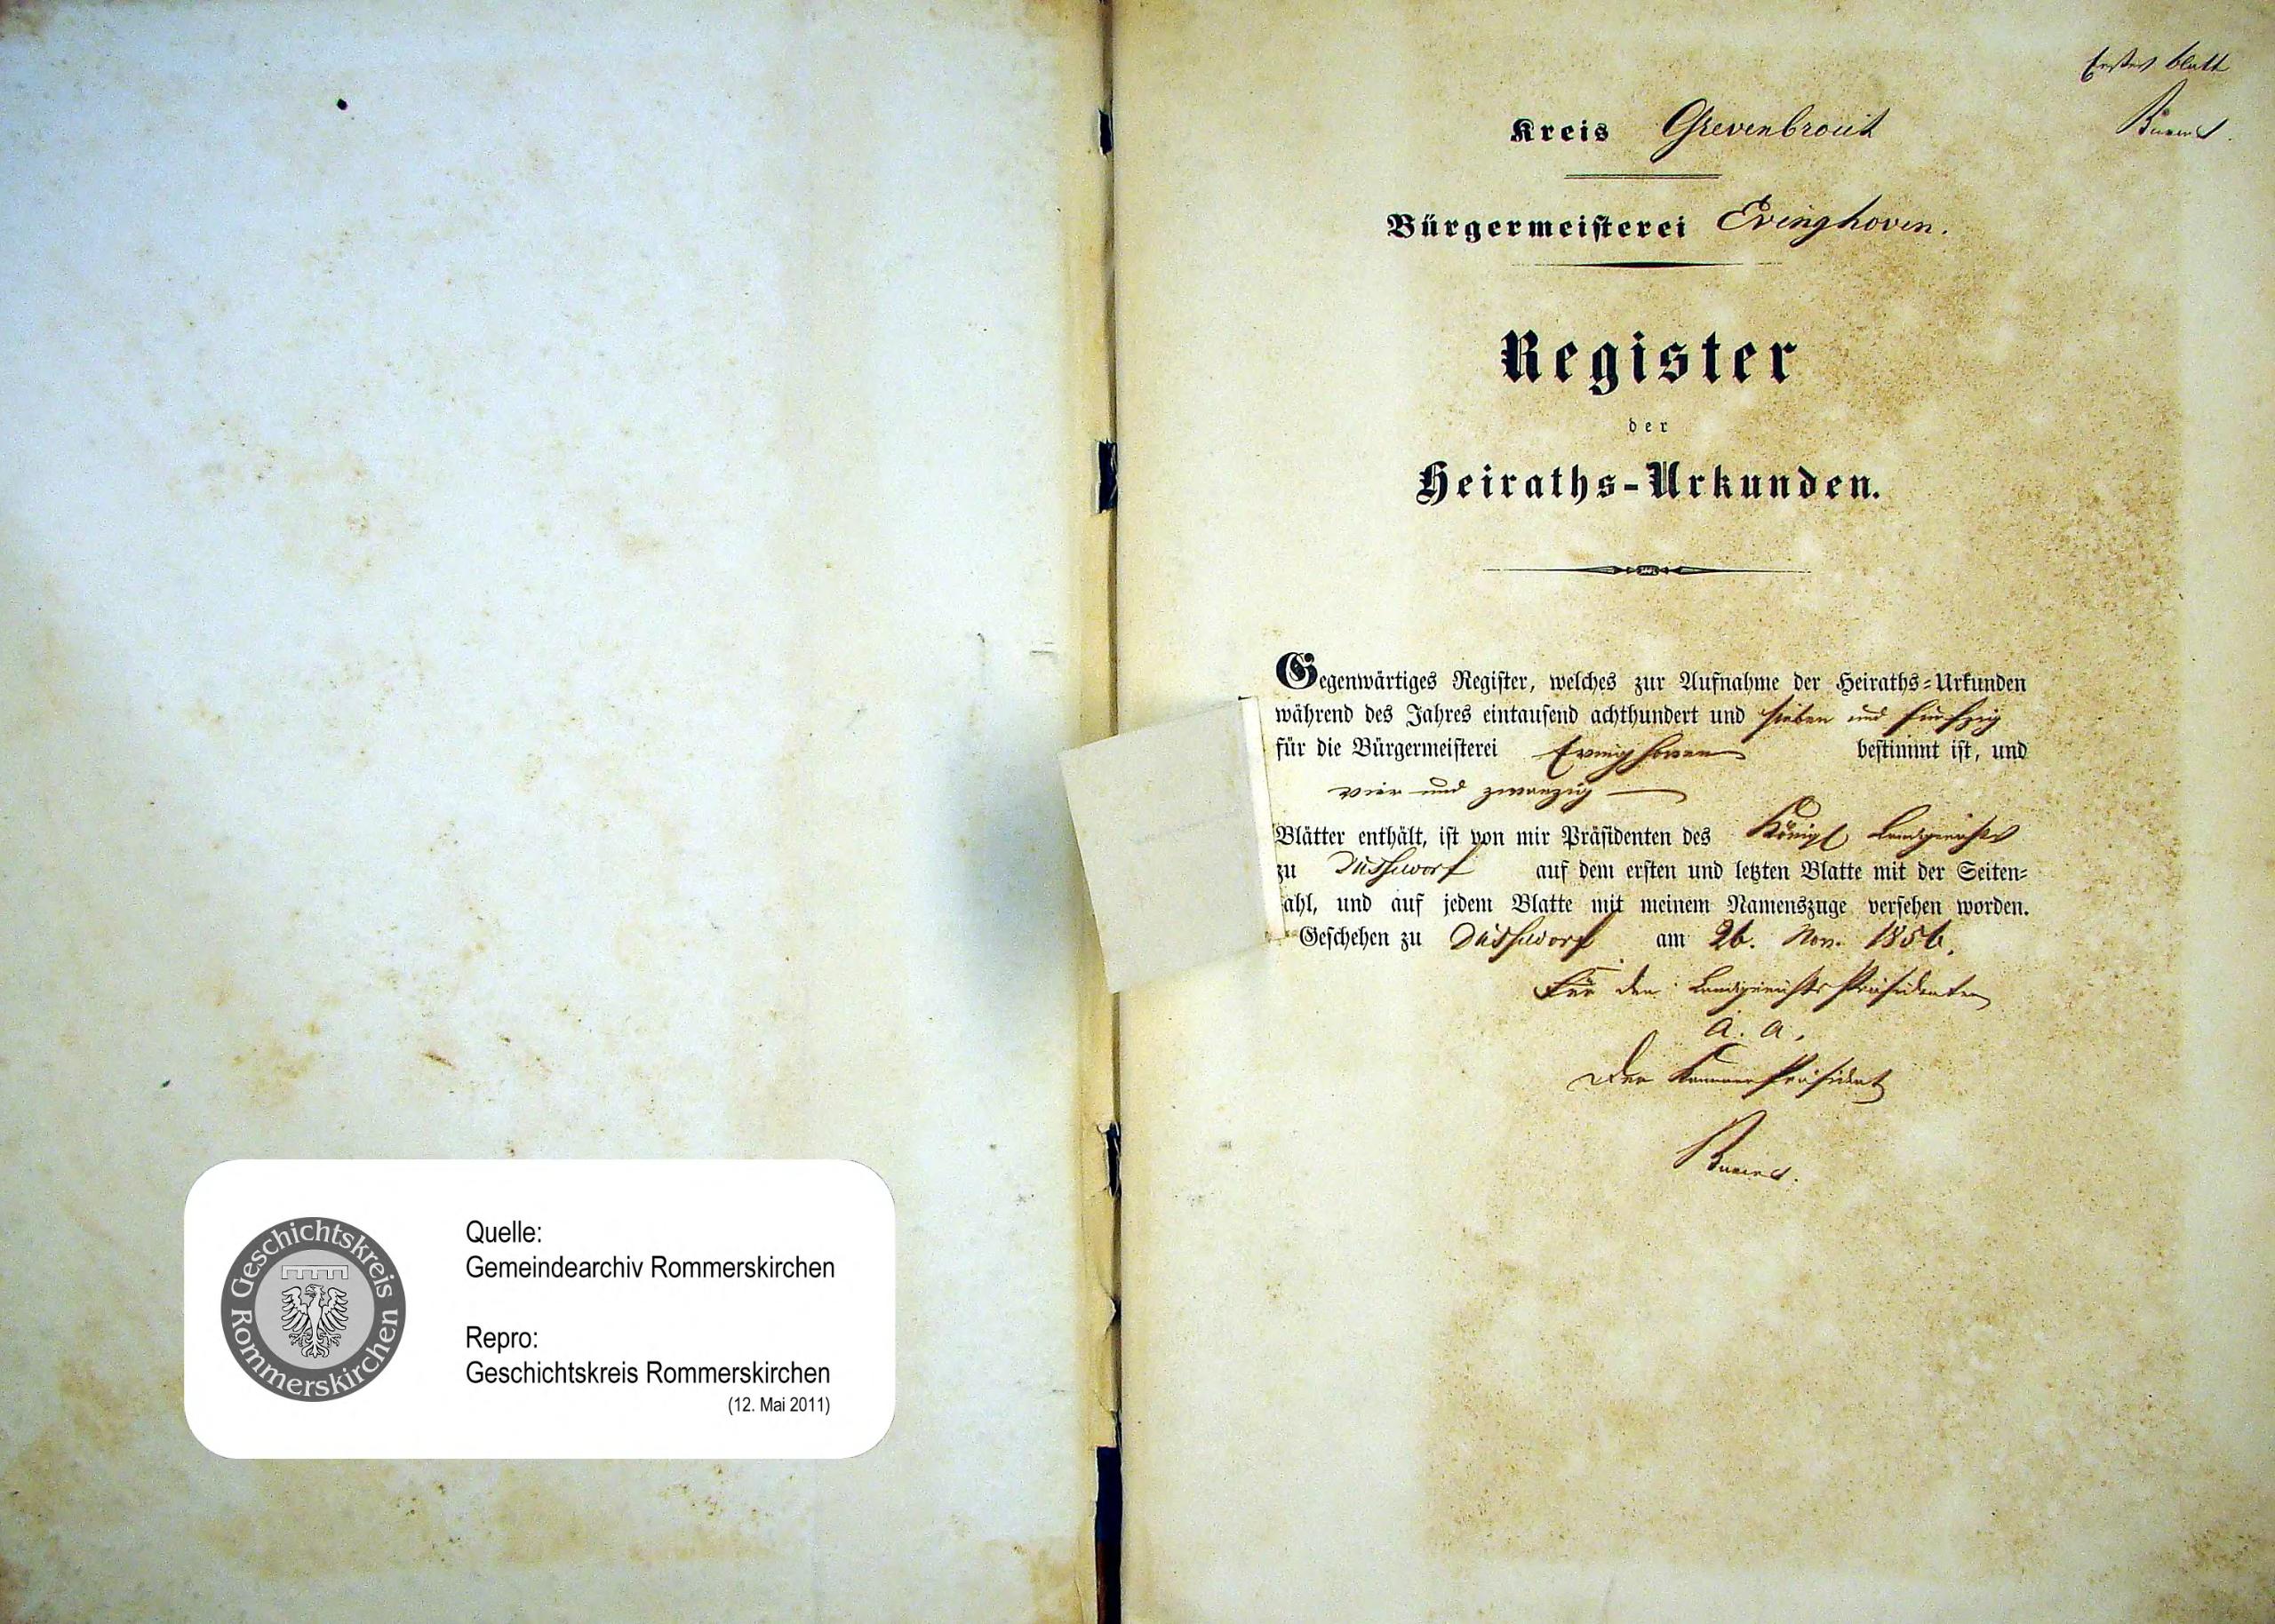 Erstes Blatt
Kreis Grevenbroich
Bürgermeisterei Evinghoven.
Register
der
Heiraths-Urkunden.
Gegenwärtiges Register, welches zur Aufnahme der Heiraths-Urkunden
während des Jahres eintausend achthundert und sieben und fünfzig
für die Bürgermeisterei Evinghoven bestimmt ist, und
vier und zwanzig
Blätter enthält, ist von mir Präsidenten des Königl. Landgerichts
zu Düsseldorf auf dem ersten und letzten Blatte mit der Seiten-
ahl, und auf jedem Blatte mit meinem Namenszuge versehen worden.
Geschehen zu Düsseldorf am 26. Nov. 1856.
Für den Landgerichts Präsidenten
a. a.
Der Kammer Präsident
Geschichtskreis Rommerskirchen
Quelle:
Gemeindearchiv Rommerskirchen
Repro:
Geschichtskreis Rommerskirchen
(12. Mai 2011)